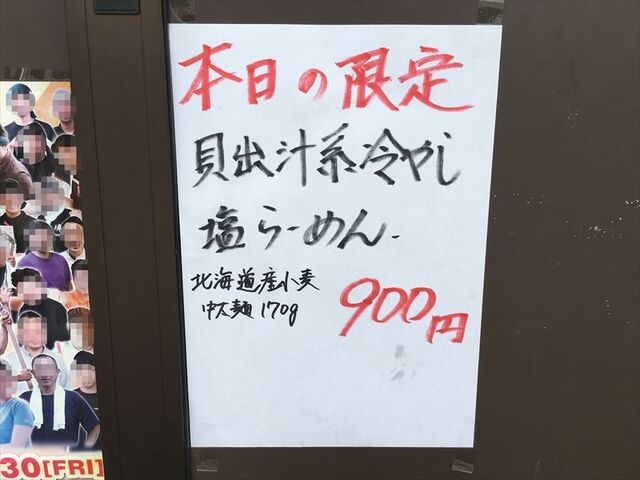 本日の限定
貝出汁系冷やし
塩らーめん.
北海道産小麦
中太麺170g
900円
30[FRI]